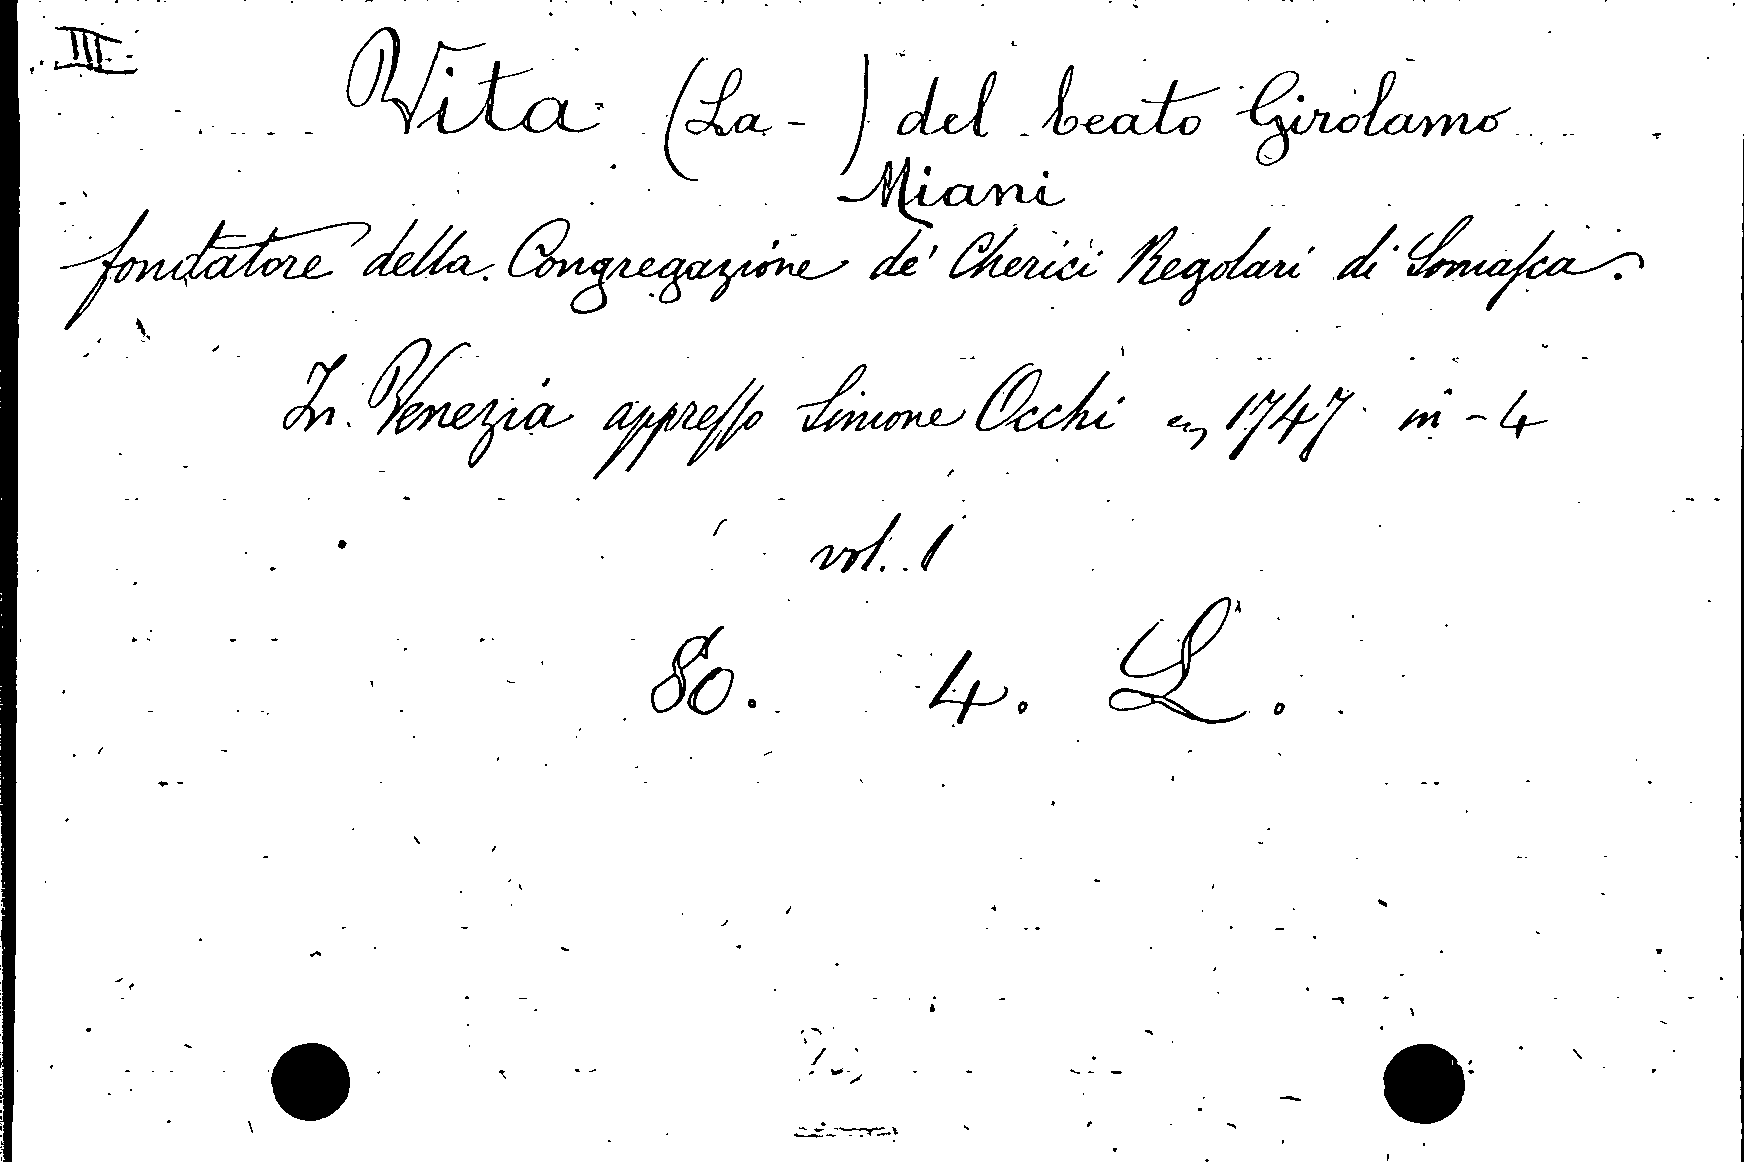 III
Vita (La - ) del beato Girolamo
Miani
fondatore della Congregazione de' Cherici Regolari di Somaſca.
In Venezia appreſſo Simone Occhi 1747 in - 4
vol. 1
80. 4. L.